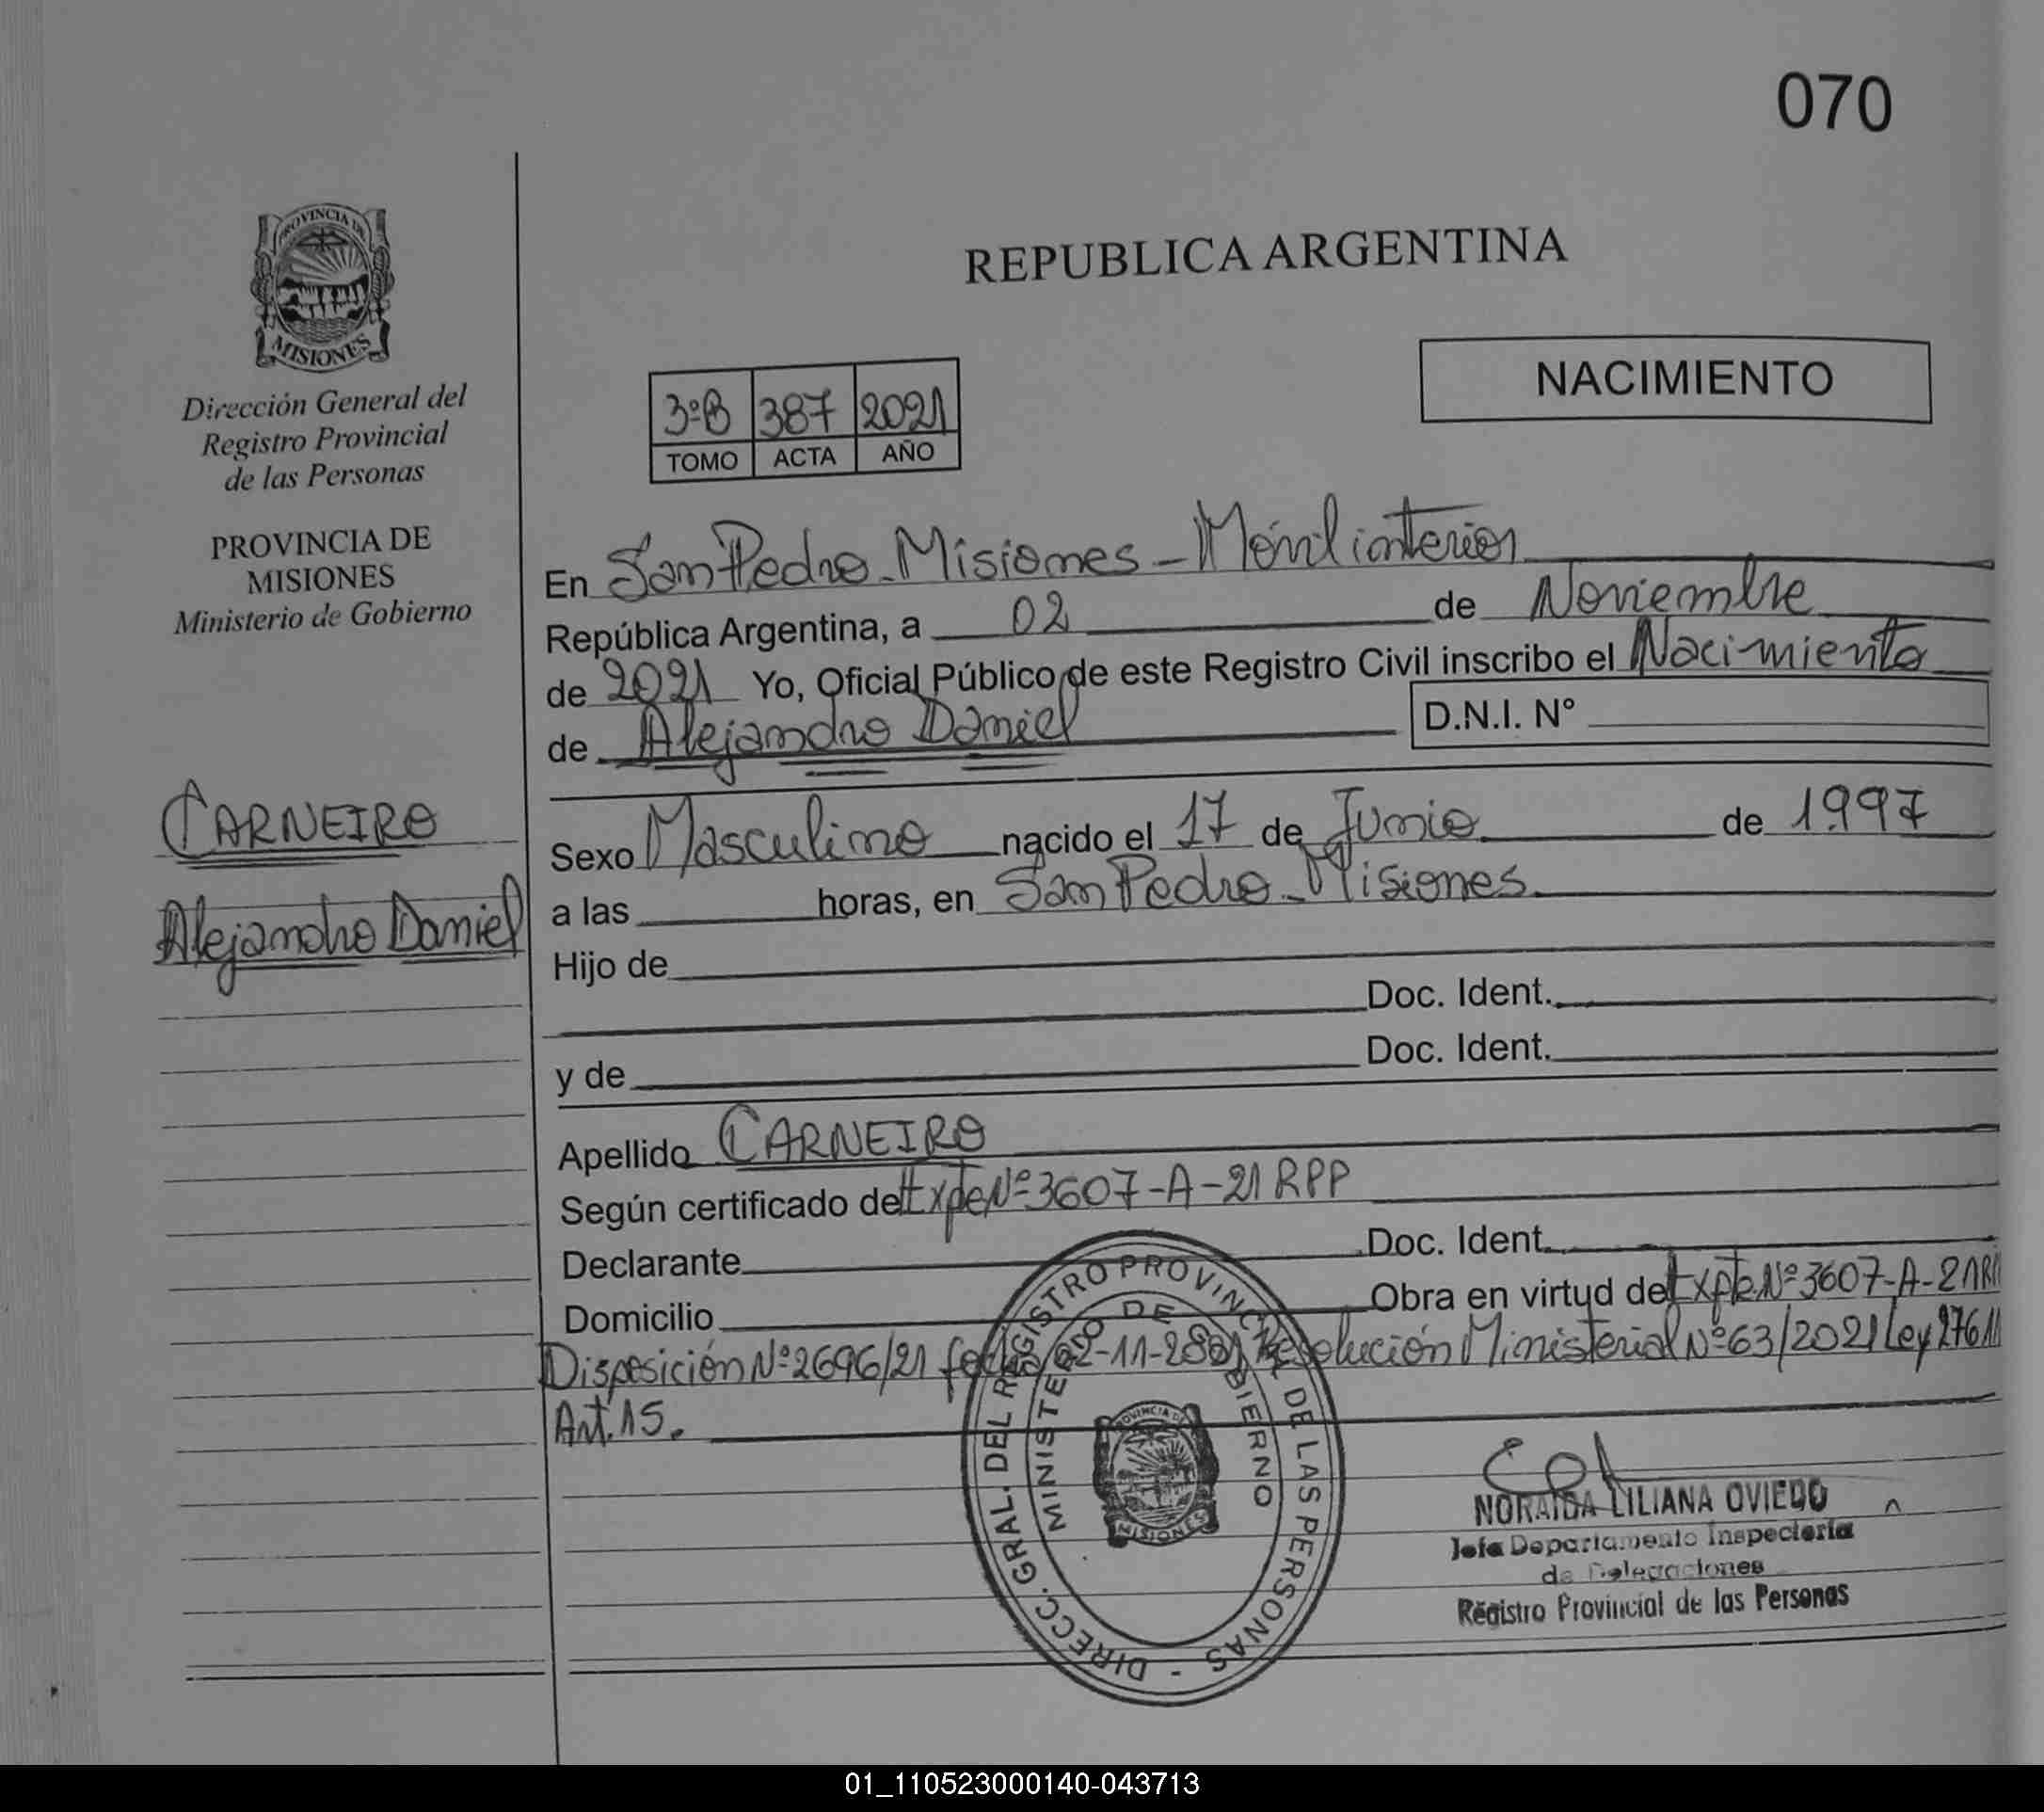 070
PROVINCIA DE
MISIONES
REPUBLICA ARGENTINA
NACIMIENTO
Dirección General del
Registro Provincial
de las Personas
PROVINCIA DE
MISIONES
Ministerio de Gobierno
3ºB 387 2021
TOMO ACTA AÑO
En San Pedro - Misiones - Móvil interior
República Argentina, a 02 de Noviembre
de 2021 Yo, Oficial Público de este Registro Civil inscribo el Nacimiento
de Alejandro Daniel D.N.I. Nº
CARNEIRO
Alejandro Daniel
Sexo Masculino nacido el 17 de Junio de 1997
a las horas, en San Pedro - Misiones
Hijo de
Doc. Ident.
y de Doc. Ident.
Apellido CARNEIRO
Según certificado de Expte Nº 3607-A-21 RPP
Declarante Doc. Ident.
Domicilio Obra en virtud de Expte. Nº 3607-A-21
Disposición Nº 2696/21 fecha 02-11-2021 Resolución Ministerial Nº 63/2021 Ley 27611
Art. 15.
DIRECC. GRAL. DEL REGISTRO PROVINCIAL DE LAS PERSONAS -
MINISTERIO DE GOBIERNO
PROVINCIA DE
MISIONES
NORAIDA LILIANA OVIEDO
Jefa Departamento Inspectoria
de Delegaciones
Registro Provincial de las Personas
01_110523000140-043713